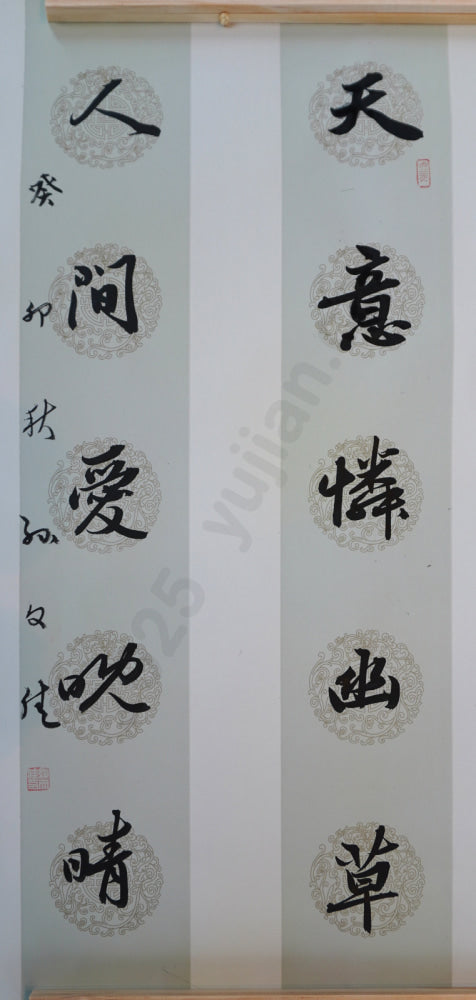 天意憐幽草
人間愛晚晴
癸卯秋孫文佳
2025 yujian.